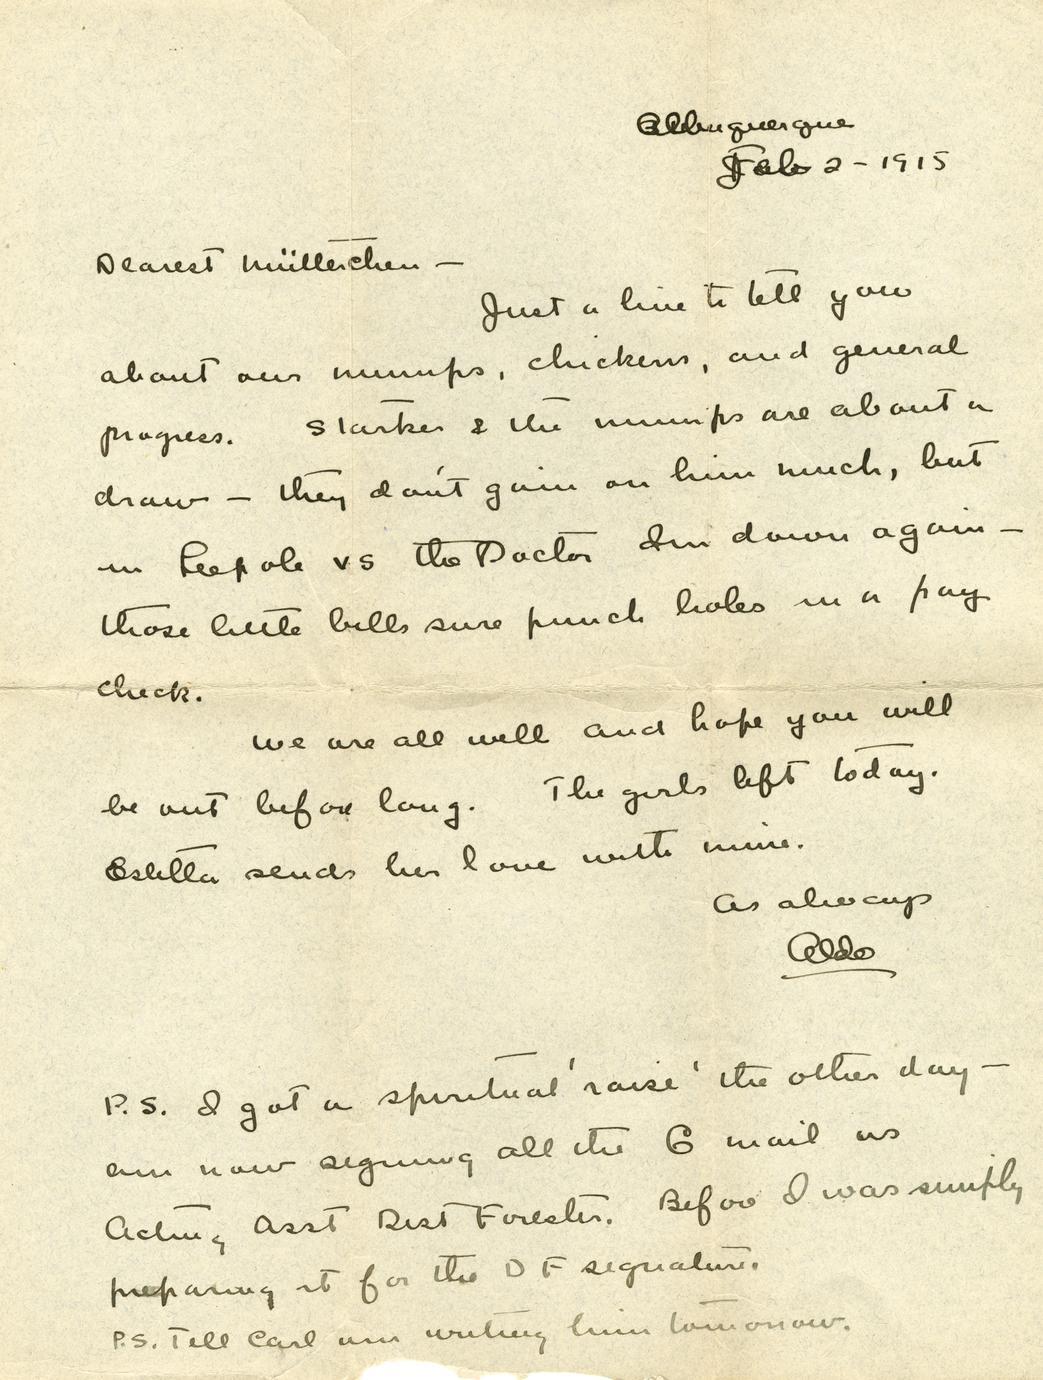 Albuquerque
Feb 2 - 1915
Dearest Mütterchen —
Just a line to tell you
about our mumps, chickens, and general
progress. Starker & the mumps are about a
draw — they don't gain on him much, but
in Leopold vs the Doctor I'm down again —
those little bills sure punch holes in a pay
check.
We are all well and hope you will
be out before long. The girls left today.
Estella sends her love with mine.
As always
Aldo
P.S. I got a spiritual 'raise' the other day —
am now signing all the G mail as
Acting Asst Dist Forester. Before I was simply
preparing it for the D F signature.
P.S. Tell Carl am writing him tomorrow.